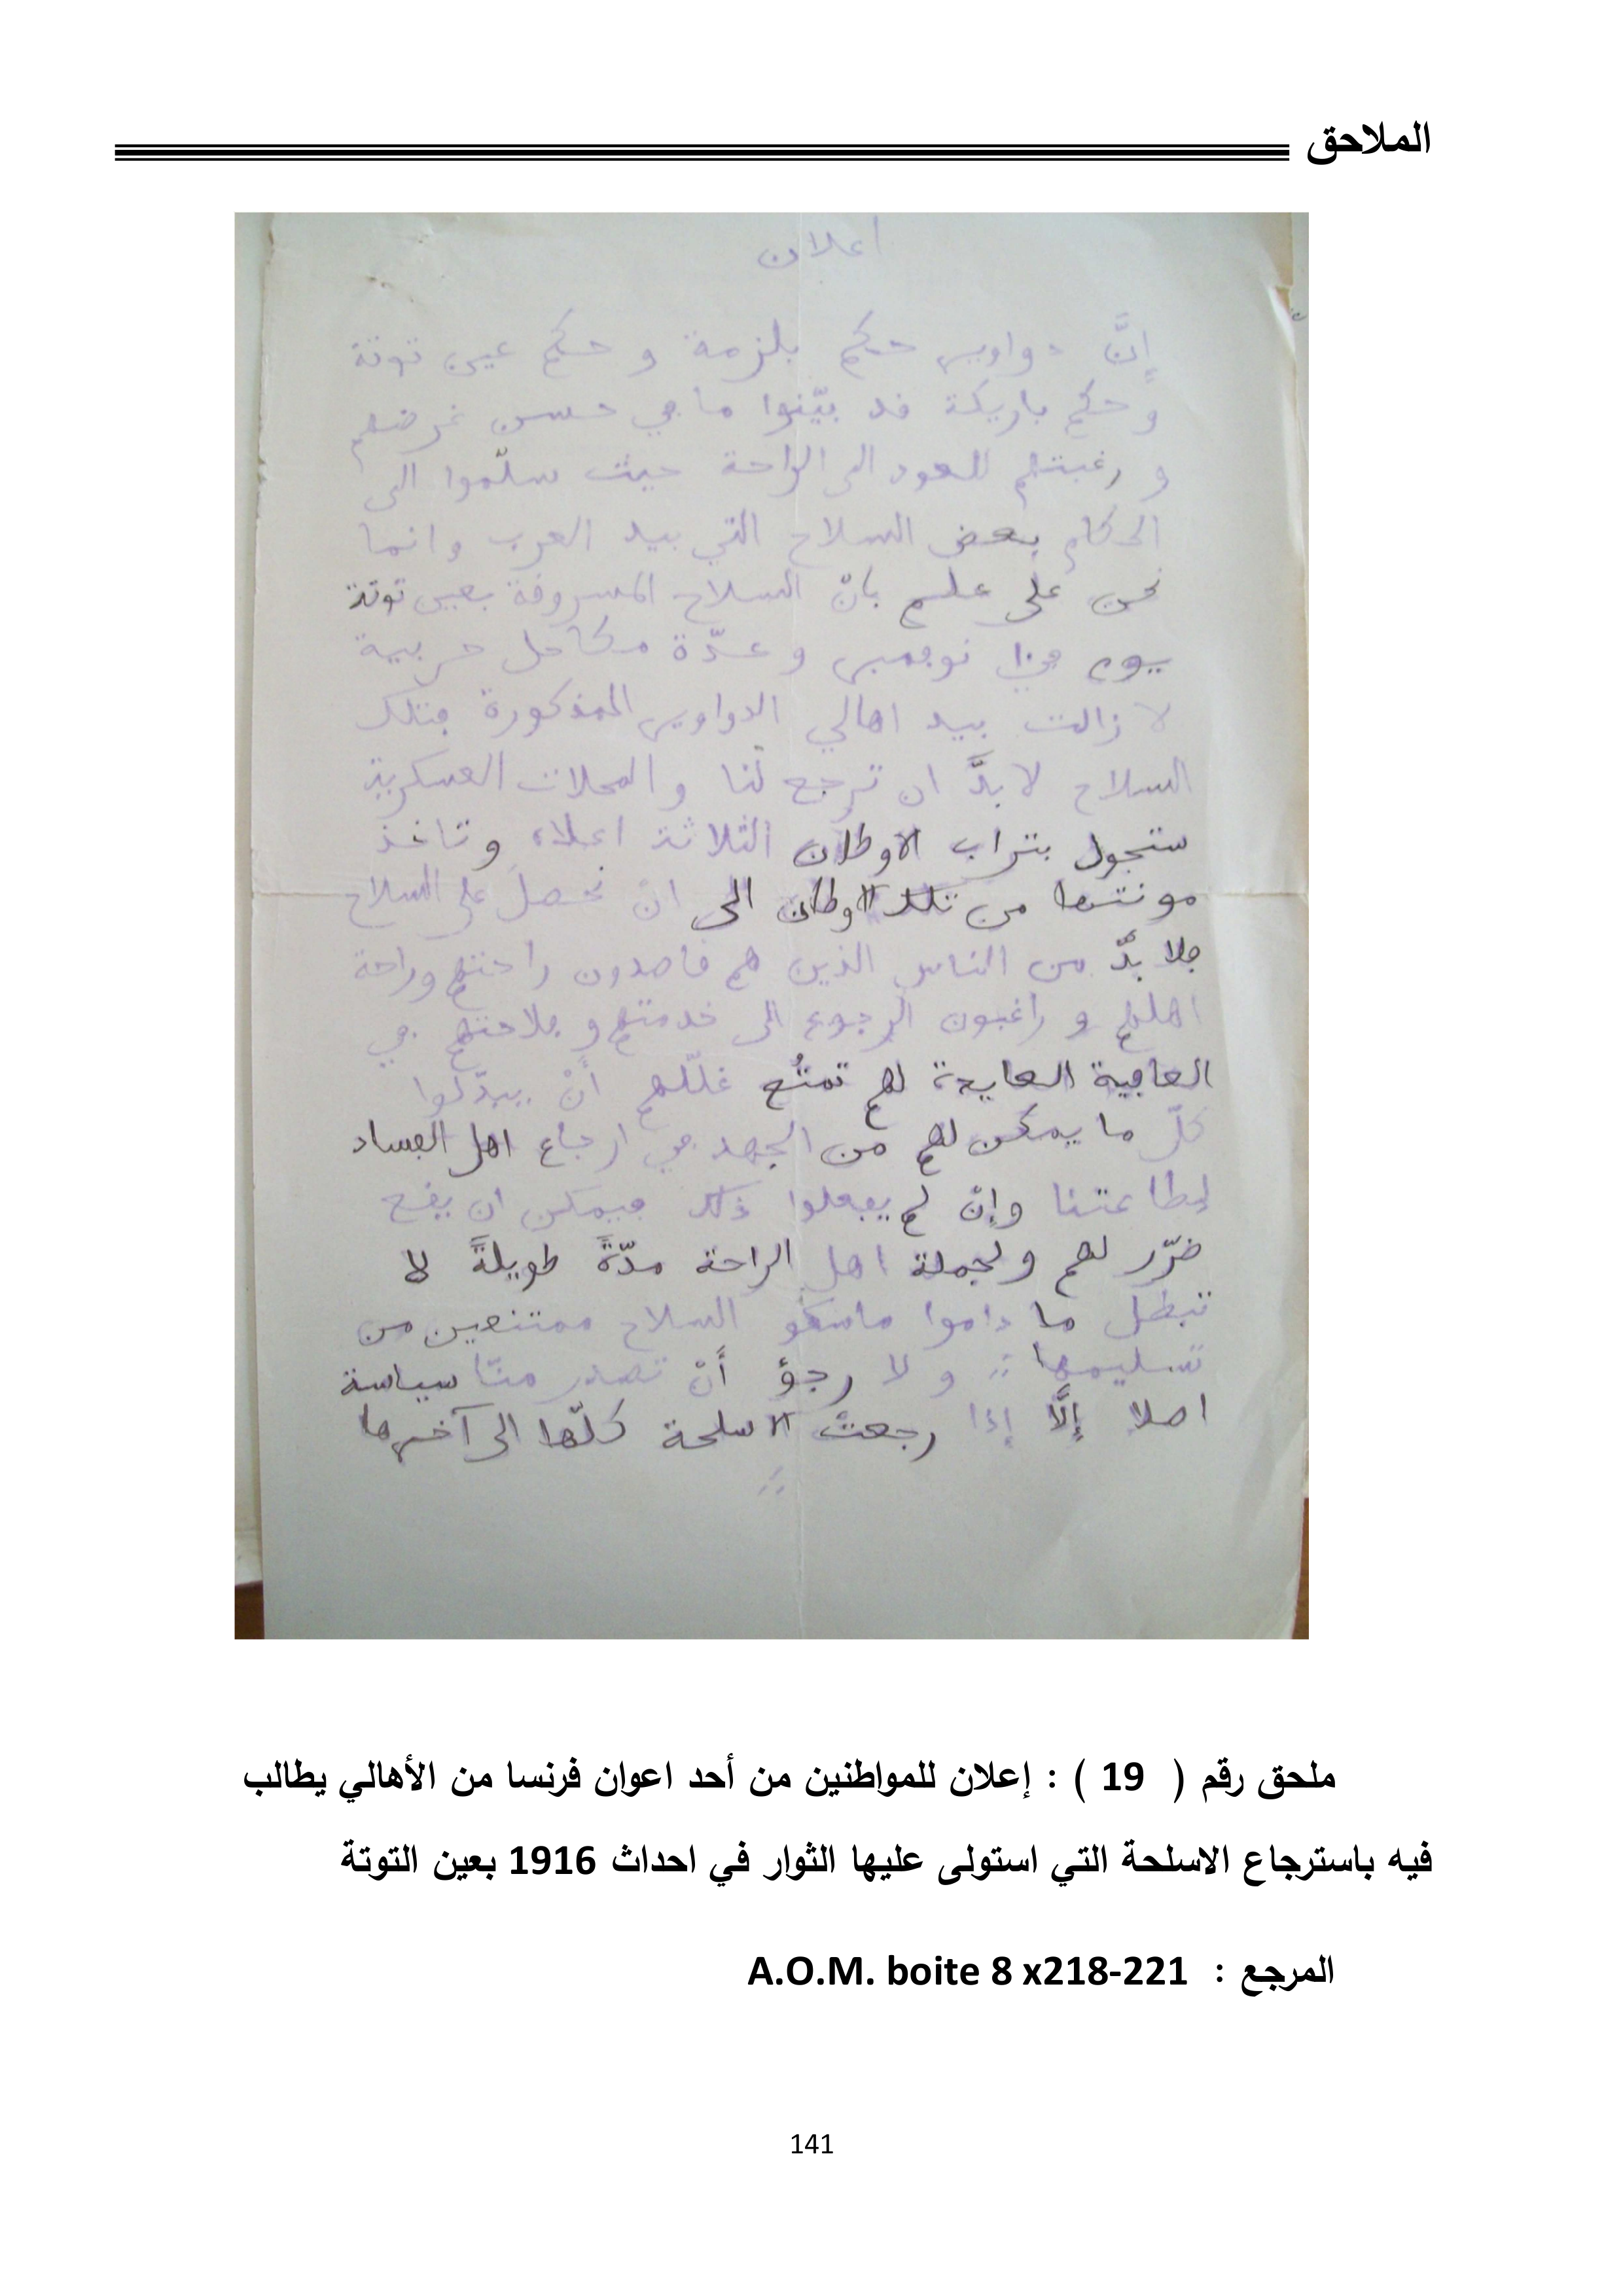 الملاحق
اعلان
إنَّ دواوير حكم بلزمة و حكم عين توتة
و حكم باريكة قد بيّنوا ما في حسن غرضهم
و رغبتهم للعود الى الراحة حيث سلّموا الى
الحكام بعض السلاح التي بيد العرب وانما
نحن على علم بانّ السلاح المسروقة بعين توتة
يوم نوفمبر وعدّة مكاحل حربية
لا زالت بيد اهالي الدواوير المذكورة فتلك
السلاح لا بدَّ ان ترجع لنا و المحلات العسكرية
ستجول بتراب الاوطان الثلاثة اعلاه وتاخذ
مونتها من تلك الاوطان الى ان نحصل على السلاح
فلا بدّ من الناس الذين هم قاصدون راحتهم وراحة
اهلهم و راغبون الرجوع الى خدمتهم و فلاحتهم في
العافية لهم غللهم أنْ يبدّلوا
كلّ ما يمكن لهم من الجهد في ارجاع اهل الفساد
لطاعتنا وإنْ لم يفعلوا ذلك فيمكن ان يقع
ضرّر لهم ولجملة اهل الراحة مدّةً طويلةً لا
تبطل ما داموا ماسكو السلاح ممتنعين من
تسليمها :: و لا رجؤ أنْ تصدر منّا سياسة
اصلا إلَّا إذا رجعتْ الاسلحة كلّها الى آخرها
ملحق رقم ( 19 ) : إعلان للمواطنين من أحد اعوان فرنسا من الأهالي يطالب
فيه باسترجاع الاسلحة التي استولى عليها الثوار في احداث 1916 بعين التوتة
المرجع : A.O.M. boite 8 x218-221
141